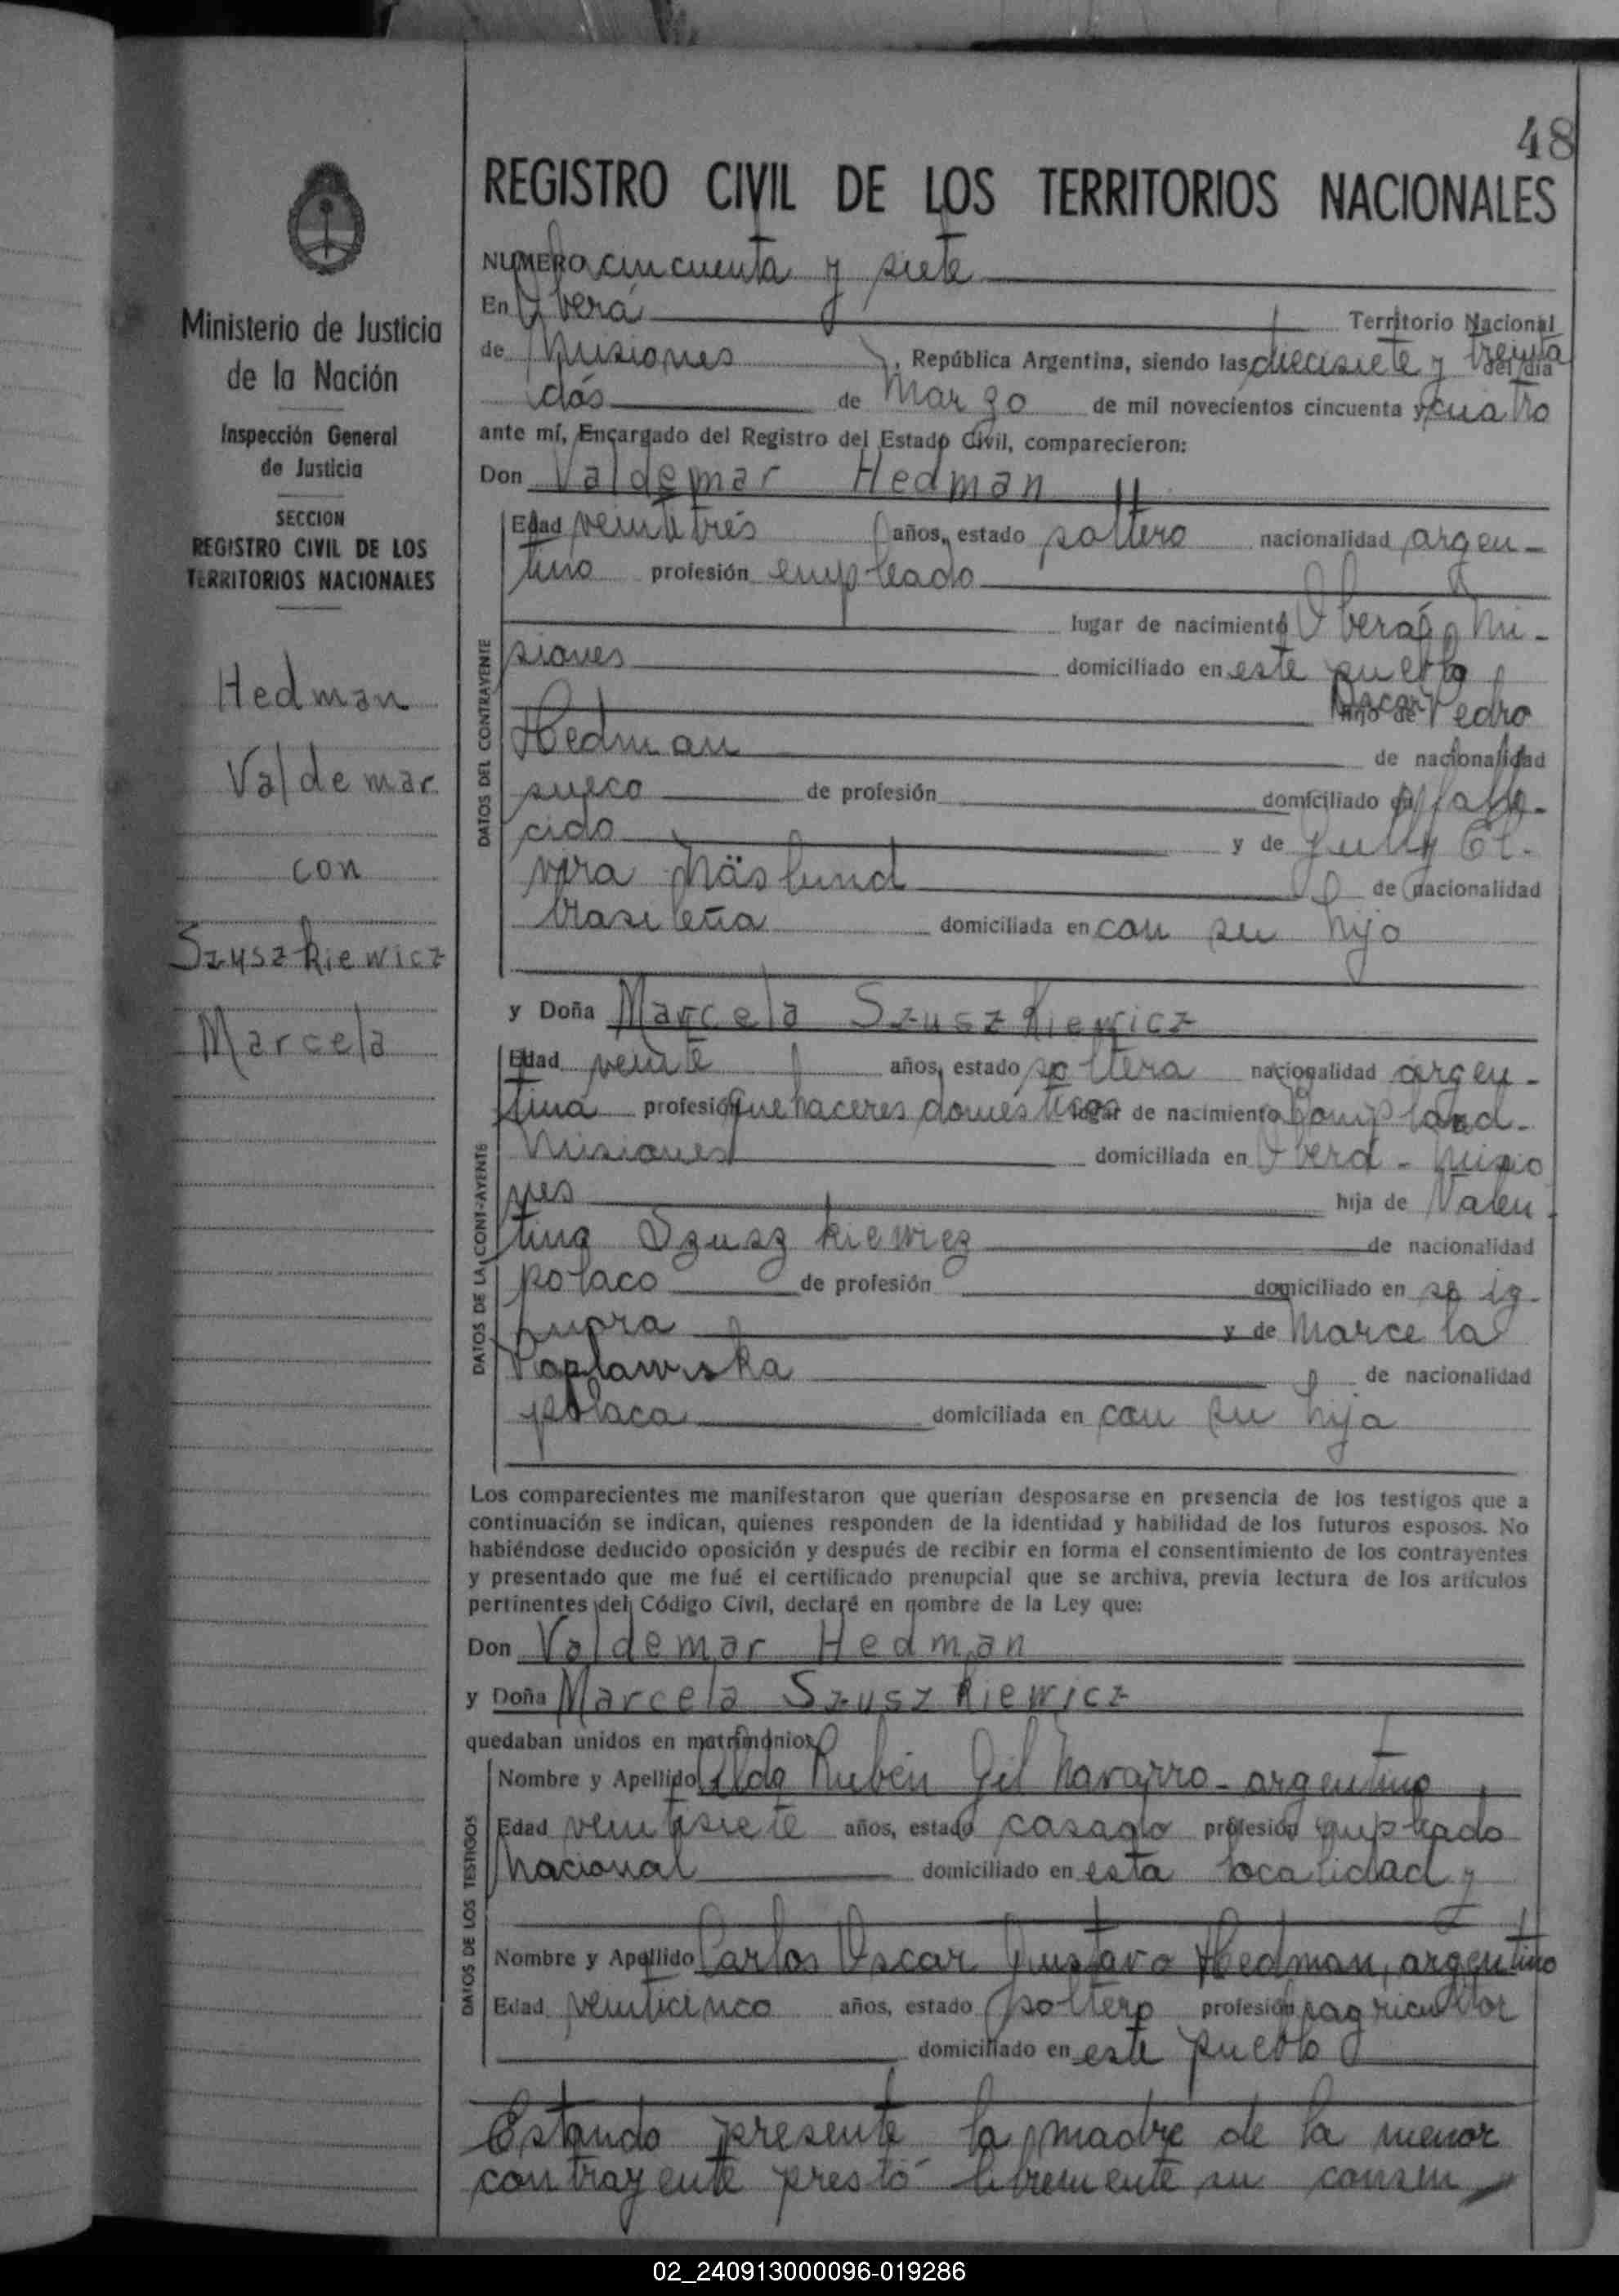 48
REGISTRO CIVIL DE LOS TERRITORIOS NACIONALES
Ministerio de Justicia
de la Nación
Inspección General
de Justicia
SECCION
REGISTRO CIVIL DE LOS
TERRITORIOS NACIONALES
Hedman
Valdemar
con
Szuszkiewicz
Marcela
NUMERO cincuenta y siete
En Oberá Territorio Nacional
de Misiones, República Argentina, siendo las diecisiete y treinta del día
dós de Marzo de mil novecientos cincuenta y cuatro
ante mí, Encargado del Registro del Estado Civil, comparecieron:
Don Valdemar Hedman
DATOS DEL CONTRAYENTE
Edad veintitrés años, estado soltero nacionalidad argen-
tino profesión empleado
lugar de nacimiento Oberá, Mi-
siones domiciliado en este pueblo
hijo de Oscar Pedro
Hedman de nacionalidad
sueco de profesión domiciliado en falle-
cido y de Jully El-
vira Mäslund de nacionalidad
brasileña domiciliada en con su hijo
y Doña Marcela Szuszkiewicz
DATOS DE LA CONT-AYENTE
Edad veinte años, estado soltera nacionalidad argen-
tina profesión quehaceres domésticos lugar de nacimiento Bompland-
Misiones domiciliada en Oberá - Misio
nes hija de Valen-
tino Szuszkiewicz de nacionalidad
polaco de profesión domiciliado en se ig-
nora y de Marcela
Poplawska de nacionalidad
polaca domiciliada en con su hija
Los comparecientes me manifestaron que querían desposarse en presencia de los testigos que a
continuación se indican, quienes responden de la identidad y habilidad de los futuros esposos. No
habiéndose deducido oposición y después de recibir en forma el consentimiento de los contrayentes
y presentado que me fué el certificado prenupcial que se archiva, previa lectura de los artículos
pertinentes del Código Civil, declaré en nombre de la Ley que:
Don Valdemar Hedman
y Doña Marcela Szuszkiewicz
quedaban unidos en matrimonio.
DATOS DE LOS TESTIGOS
Nombre y Apellido Rubén Gil Navarro - argentino
Edad veintisiete años, estado casado profesión empleado
Nacional domiciliado en esta localidad y
Nombre y Apellido Carlos Oscar Gustavo Hedman, argentino
Edad veinticinco años, estado soltero profesión agricultor
domiciliado en este pueblo
Estando presente la madre de la menor
contrayente prestó libremente su consen
02_240913000096-019286